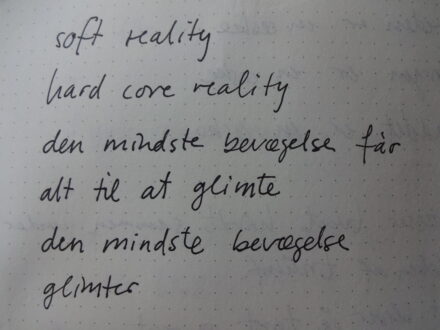 soft reality
hard core reality
den mindste bevægelse får
alt til at glimte
den mindste bevægelse
glimter